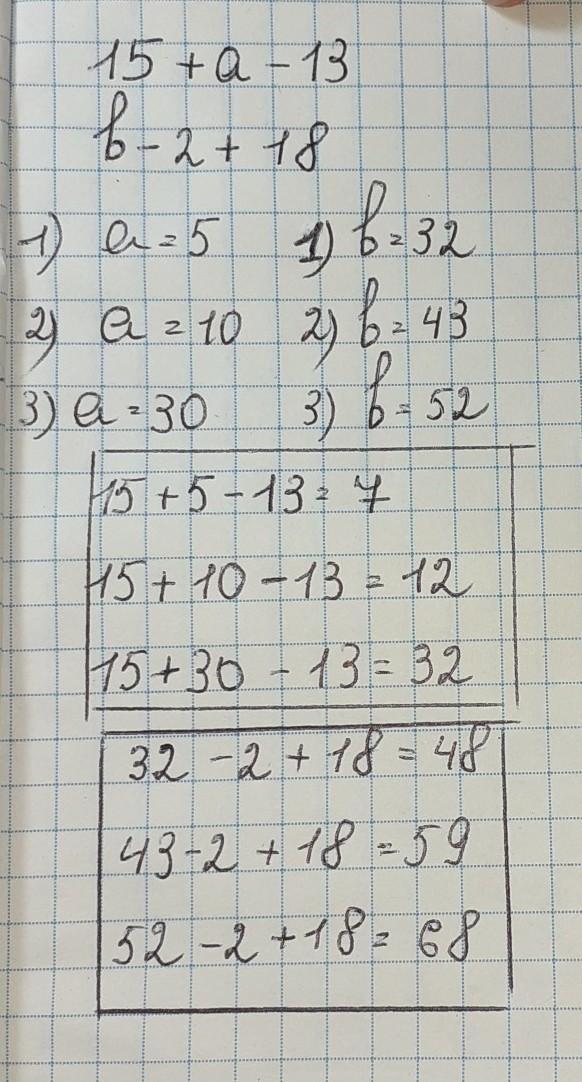 15 + a - 13
b - 2 + 18
1) a = 5 1) b = 32
2) a = 10 2) b = 43
3) a = 30 3) b = 52
15 + 5 - 13 = 7
15 + 10 - 13 = 12
15 + 30 - 13 = 32
32 - 2 + 18 = 48
43 - 2 + 18 = 59
52 - 2 + 18 = 68